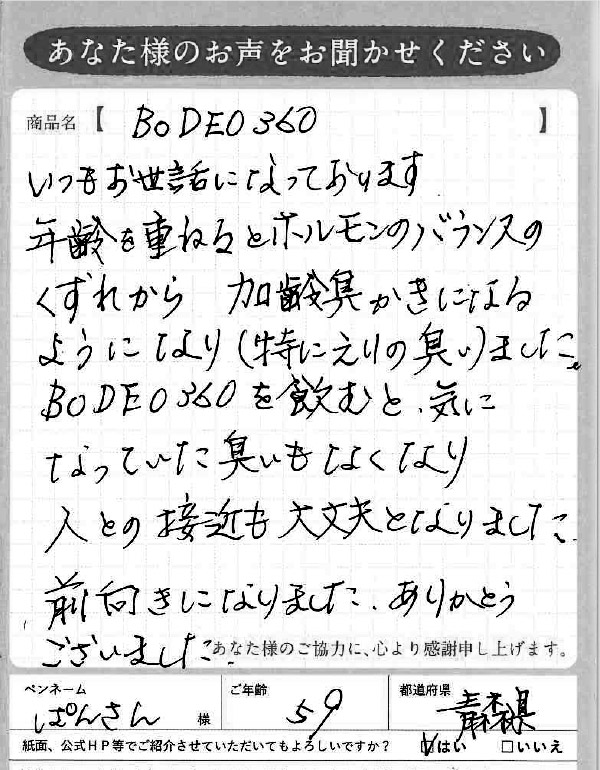 あなた様のお声をお聞かせください
商品名【 BODEO360 】
いつもお世話になっております
年齢を重ねるとホルモンのバランスの
くずれから 加齢臭がきになる
ようになり(特にえりの臭い)ました。
BODEO360を飲むと、気に
なっていた臭いもなくなり
人との接近も大丈夫となりました。
前向きになりました。ありがとう
ございました。
あなた様のご協力に、心より感謝申し上げます。
ペンネーム ぱんさん 様 ご年齢 59 都道府県 青森県
紙面、公式HP等でご紹介させていただいてもよろしいですか? ☑はい □いいえ